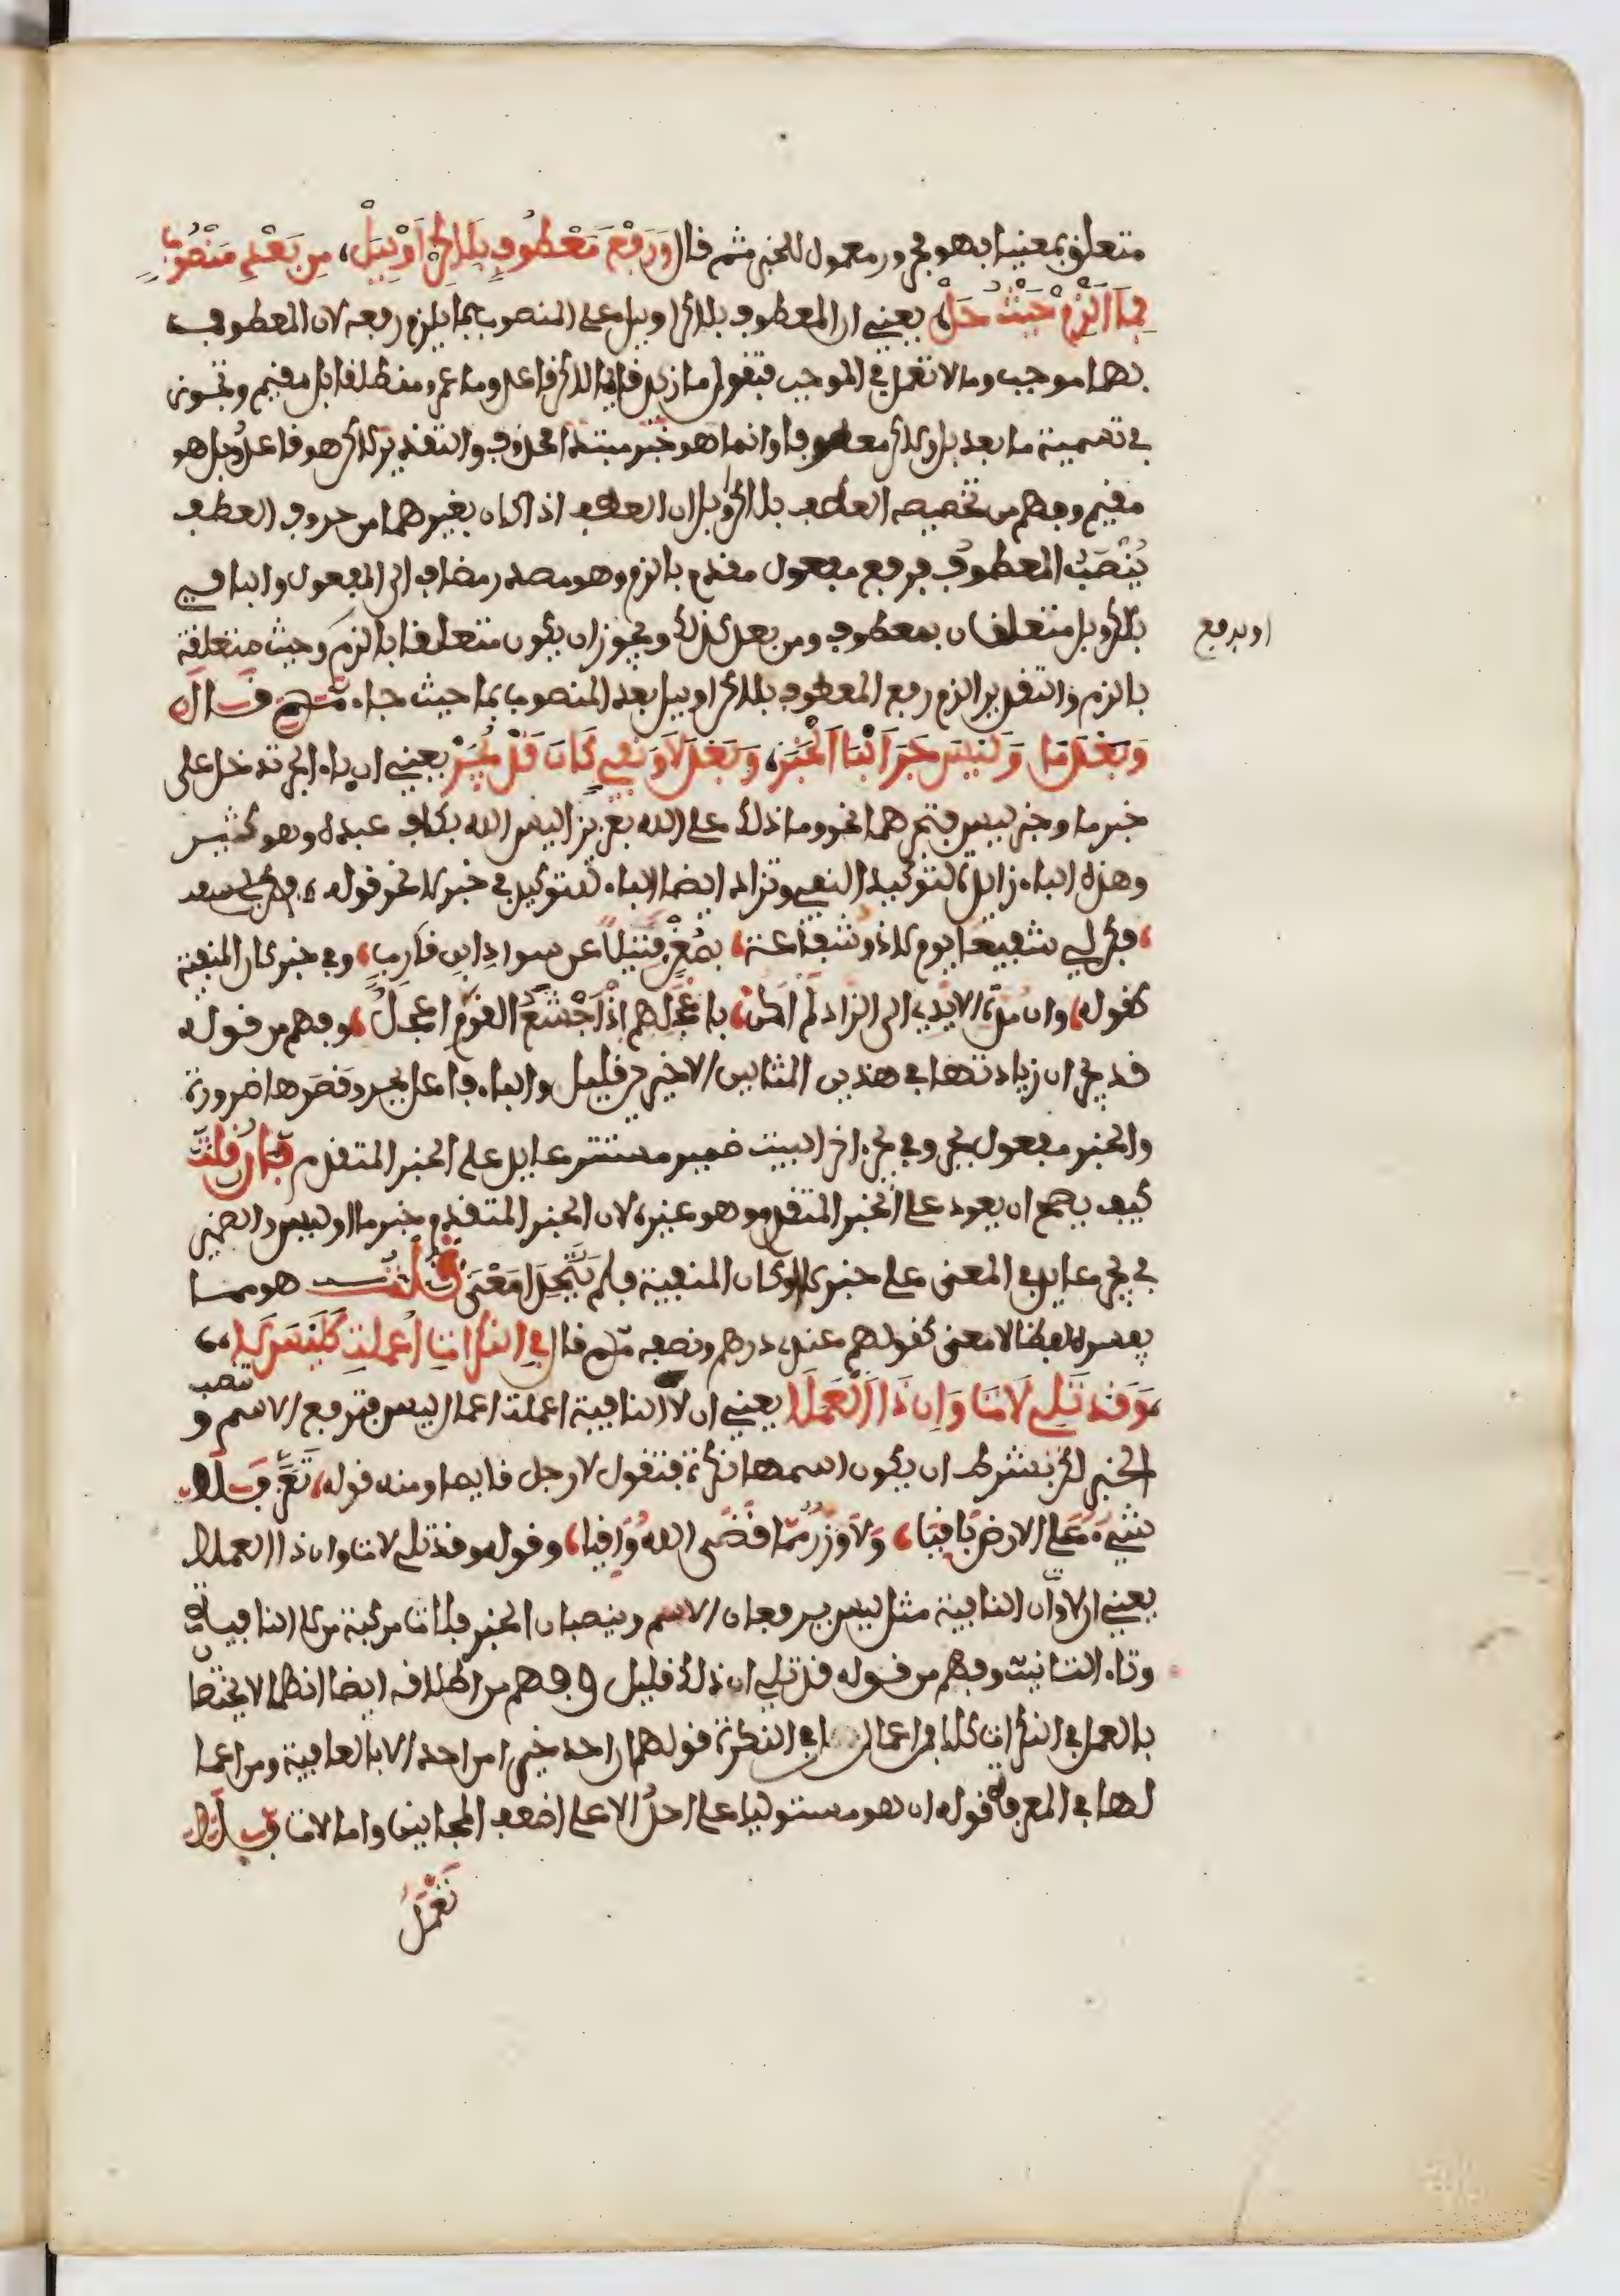 متعلق بمعنيا بهو مجرور معمول للخبر ثم قال وَرَفْعَ مَعْطُوفٍ بِلَاكِنْ اَوْ بِبَلْ، مِن بَعْدِ مَنْصُوبٍ
بِمَا اَلْزَمْ حَيْثُ حَلْ يعني ان المعطوف بلاكن او ببل على المنصوب بما يلزم رفعه لان المعطوف
بهما موجب وما لا تعمل في الموجب فتقول ما زيد قائما لاكن قاعد وما عمرو منطلقا بل مقيم وتجوز
في تسمية ما بعد بل ولاكن معطوفا وانما هو خبر مبتدا محذوف والتقدير لاكن هو قاعد وبل هو
مقيم وفهم من تخصيصه العطف بلاكن وبل ان العطف اذا كان بغيرهما من حروف العطف
يُنْصَبُ المعطوفُ فرفع مفعول مقدم بالزم وهو مصدر مضاف الى المفعول والباء في
بلاكن وبل متعلقان بمعطوف ومن بعد كذلك ويجوز ان يكون متعلقا بالزم وحيث متعلقة
او برفع
بالزم والتقدير الزم رفع المعطوف بلاكن او ببل بعد المنصوب بما حيث جاء ثم قال
وَبَعْدَ مَا وَلَيْسَ جَرَّ الْبَا الْخَبَرْ، وَبَعْدَ لَا وَنَفْيِ كَانَ قَدْ يُجَرْ يعني ان باء الجر تدخل على
خبر ما وخبر ليس فتجرهما نحو وما ذلك على الله بعزيز اليس الله بكاف عبده وهو كثير
وهذه الباء زايدة لتوكيد النفي وتزاد ايضا الباء لتوكيد في خبر لا نحو قوله
فكن لي شفيعا يوم لا ذو شفاعة بمُغْنٍ فتيلًا عن سواد ابن قارب وفي خبر كان المنفية
كقوله وان مدت الايدي الى الزاد لم اكن باعجلهم اذ اَجْشَعُ القوم اعجلُ وفهم من قوله
قد يجر ان زيادتها في هذين المثالين الاخيرين قليل والباء فاعل بجر وقصرها ضرورة
والخبر مفعول بجر وفي يجر اخر البيت ضمير مستتر عايد على الخبر المتقدم فإن قلت
كيف يصح ان يعود على الخبر المتقدم وهو غيره لان الخبر المتقدم خبر ما او ليس والضمير
في يجر عايد في المعنى على خبر لا او كان المنفية فلم يَتَّحِدَا مَعْنًى قلت هو مما
يفسره لفظا لا معنى كقولهم عندي درهم ونصفه ثم قال في النكرات اُعملت كليس لا
وَقَد تَلِي لَاتَ وَإِن ذَا الْعَمَلَا يعني ان لا النافية اعملت اعمال ليس فترفع الاسم و
تنصب
الخبر لكن بشرط ان يكون اسمها نكرة فتقول لا رجل قايما ومنه قوله تَعَزَّ فلا
شيءٌ على الارض باقيا، وَلَا وَزَرٌ مما قضى الله وَاقيا، وقوله وقد تلي لات وان ذا العملا
يعني ان لا وان النافية مثل ليس يرفعان الاسم وينصبان الخبر فلات مركبة من لا النافية
وتاء التانيث وفهم من قوله قد تلي ان ذلك قليل وفهم من اطلاقه ايضا انهما لا يختصا
بالعمل في النكرات كلا فمن اعمال في النكرة قولهم ان احد خيرا من احد الا بالعافية ومن اعما
لها في المعرفة قوله ان هو مستوليا على احد الا على اضعف المجانين واما لات فلا
تَعْمَلُ